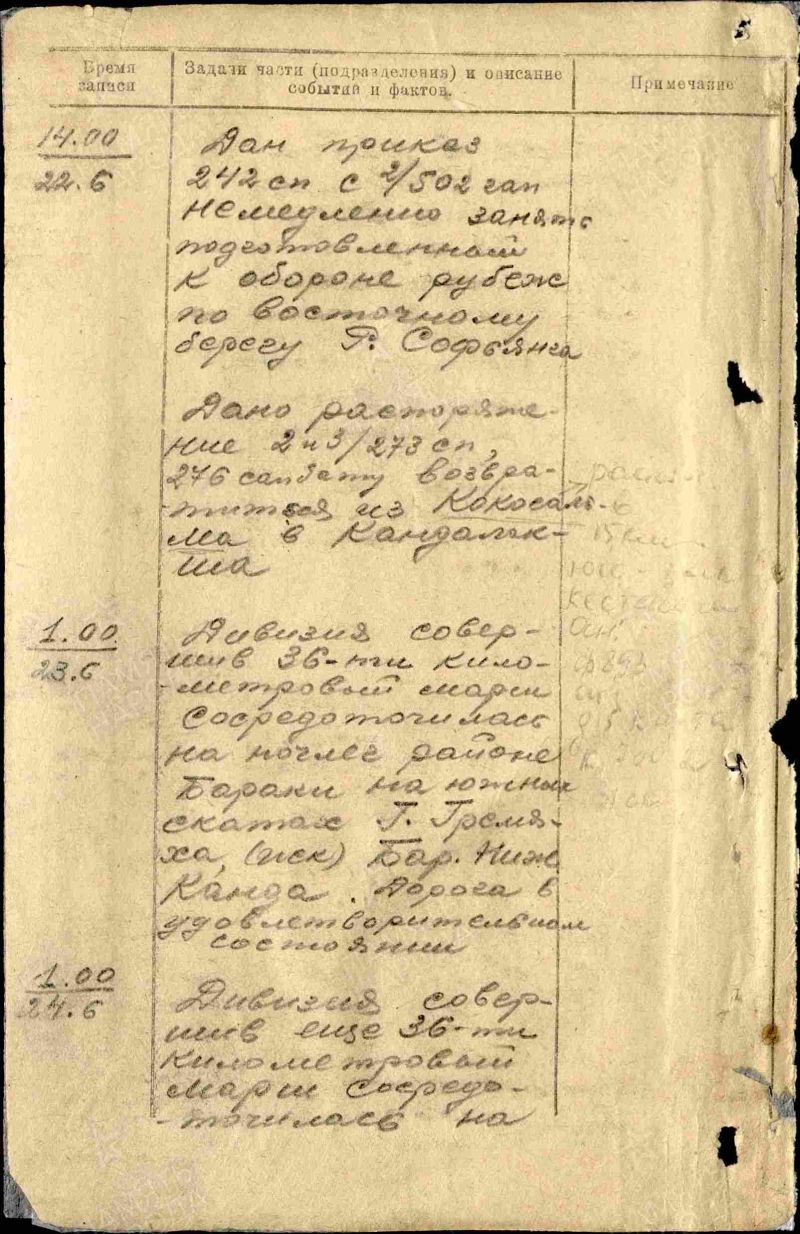 5
Время записи
Задачи части (подразделения) и описание событий и фактов.
Примечание
14.00
22.6
Дан приказ
242 сп с 2/502 гап
немедленно занять
подготовленный
к обороне рубеж
по восточному
берегу Р. Софьянга
Дано распоряже-
ние 2 и 3/273 сп,
276 сапбату возвра-
титься из Кокосаль-
ма в Кандалак-
ша
15 км
1.00
23.6
Дивизия совер-
шив 36-ти кило-
метровый марш
сосредоточилась
на ночлег районе
Бараки на южных
скатах Г. Гремя-
ха, (иск) Бар. Ниж
Канда. Дорога в
удовлетворительном
состоянии
1.00
24.6
Дивизия совер-
шив еще 36-ти
километровый
марш сосредо-
точилась на